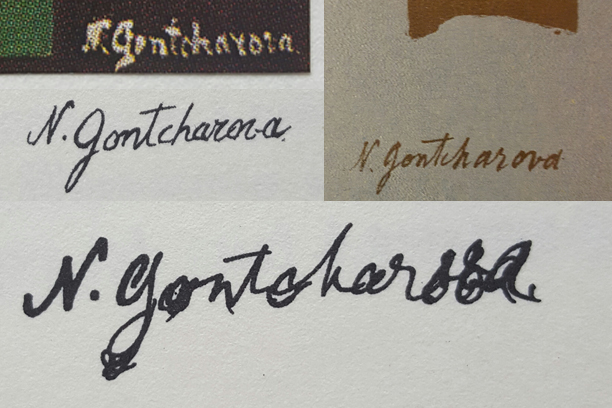 N. Gontcharova.
N. Gontcharova.
N. Gontcharova
N. Gontcharova.